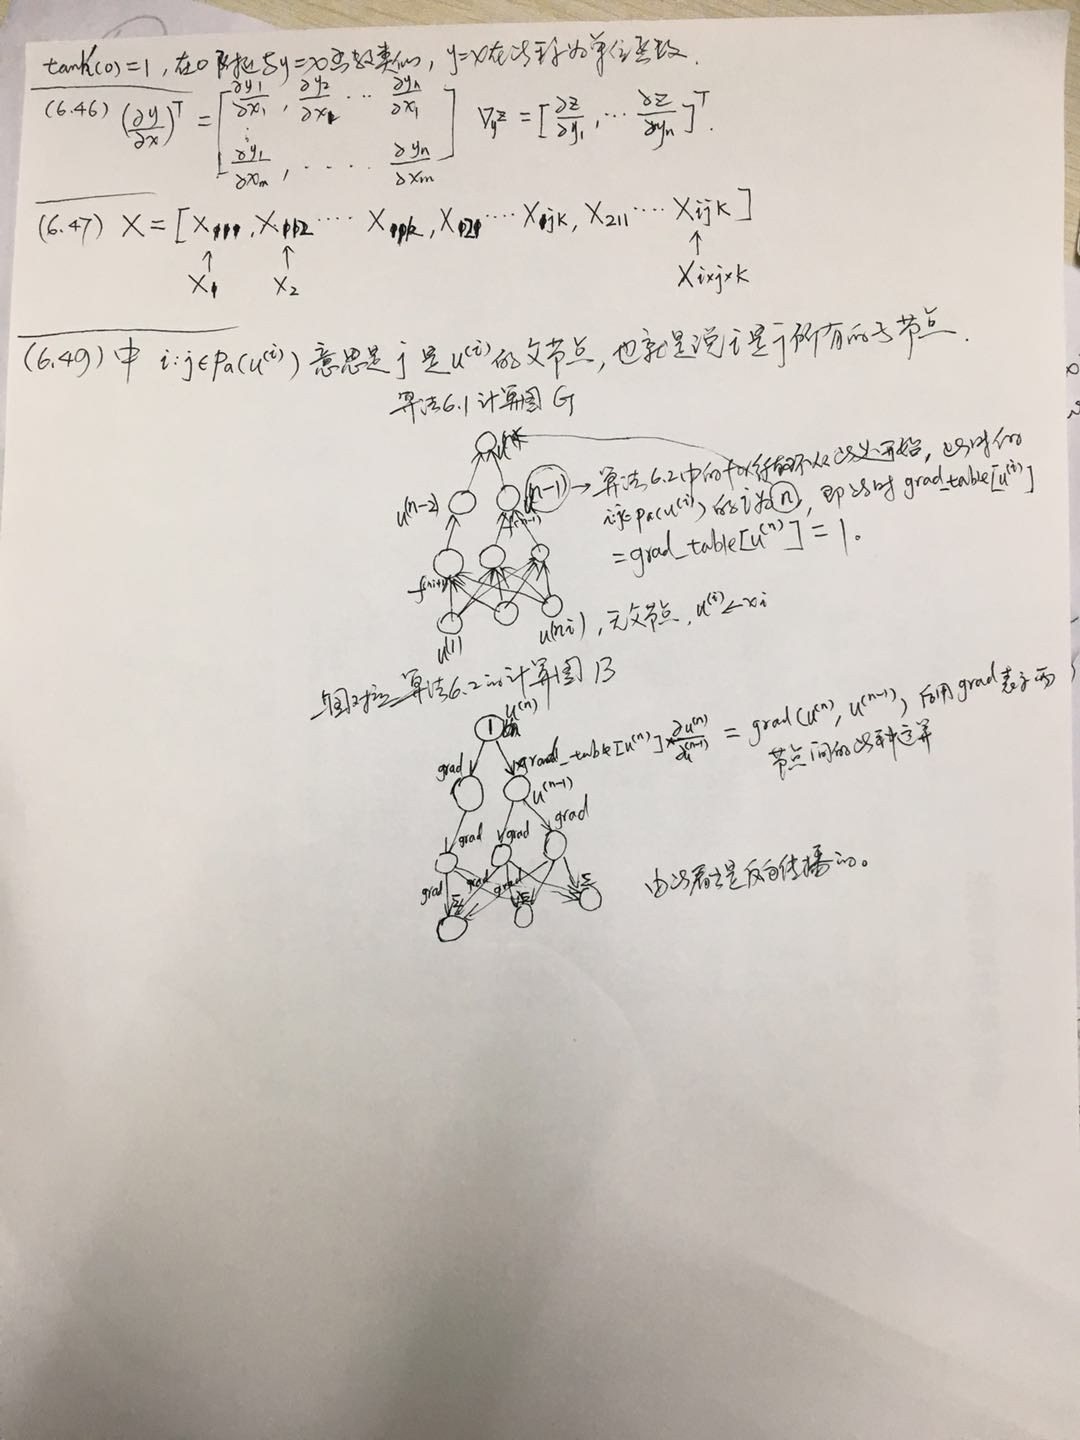 tanh'(0)=1, 在0附近与y=x函数类似, y=x在此称为单位函数.
(6.46) (∂y/∂x)^T = [∂y1/∂x1, ∂y2/∂x1 ... ∂yn/∂x1
⋮
∂y1/∂xm, ..... ∂yn/∂xm] ∇yz = [∂z/∂y1, ... ∂z/∂yn]^T.
(6.47) X = [X111, X112 ···· X11k, X121 ···· X1jk, X211 ···· Xijk]
↑ ↑ ↑
X1 X2 Xi×j×k
(6.49) 中 i:j∈Pa(u^(i)) 意思是 j 是 u^(i) 的父节点, 也就是说 i 是 j 所有的子节点.
算法6.1计算图 G
u^(n-2) (n-1) → 算法6.2中的for循环从此处开始, 此时的
i:j∈Pa(u^(i)) 的i为 n, 即此时 grad_table[u^(i)]
= grad_table[u^(n)] = 1.
u^(1) u^(ni), 无父节点, u^(i) ← xi
算法6.2的计算图 B
u^(n)
1
grad grad_table[u^(n)] × ∂u^(n)/∂u^(n-1) = grad(u^(n), u^(n-1)), 后用grad表示两
节点间的此种运算
u^(n-1)
grad grad grad
grad grad grad
Σ Σ Σ
由此看出是反向传播的。